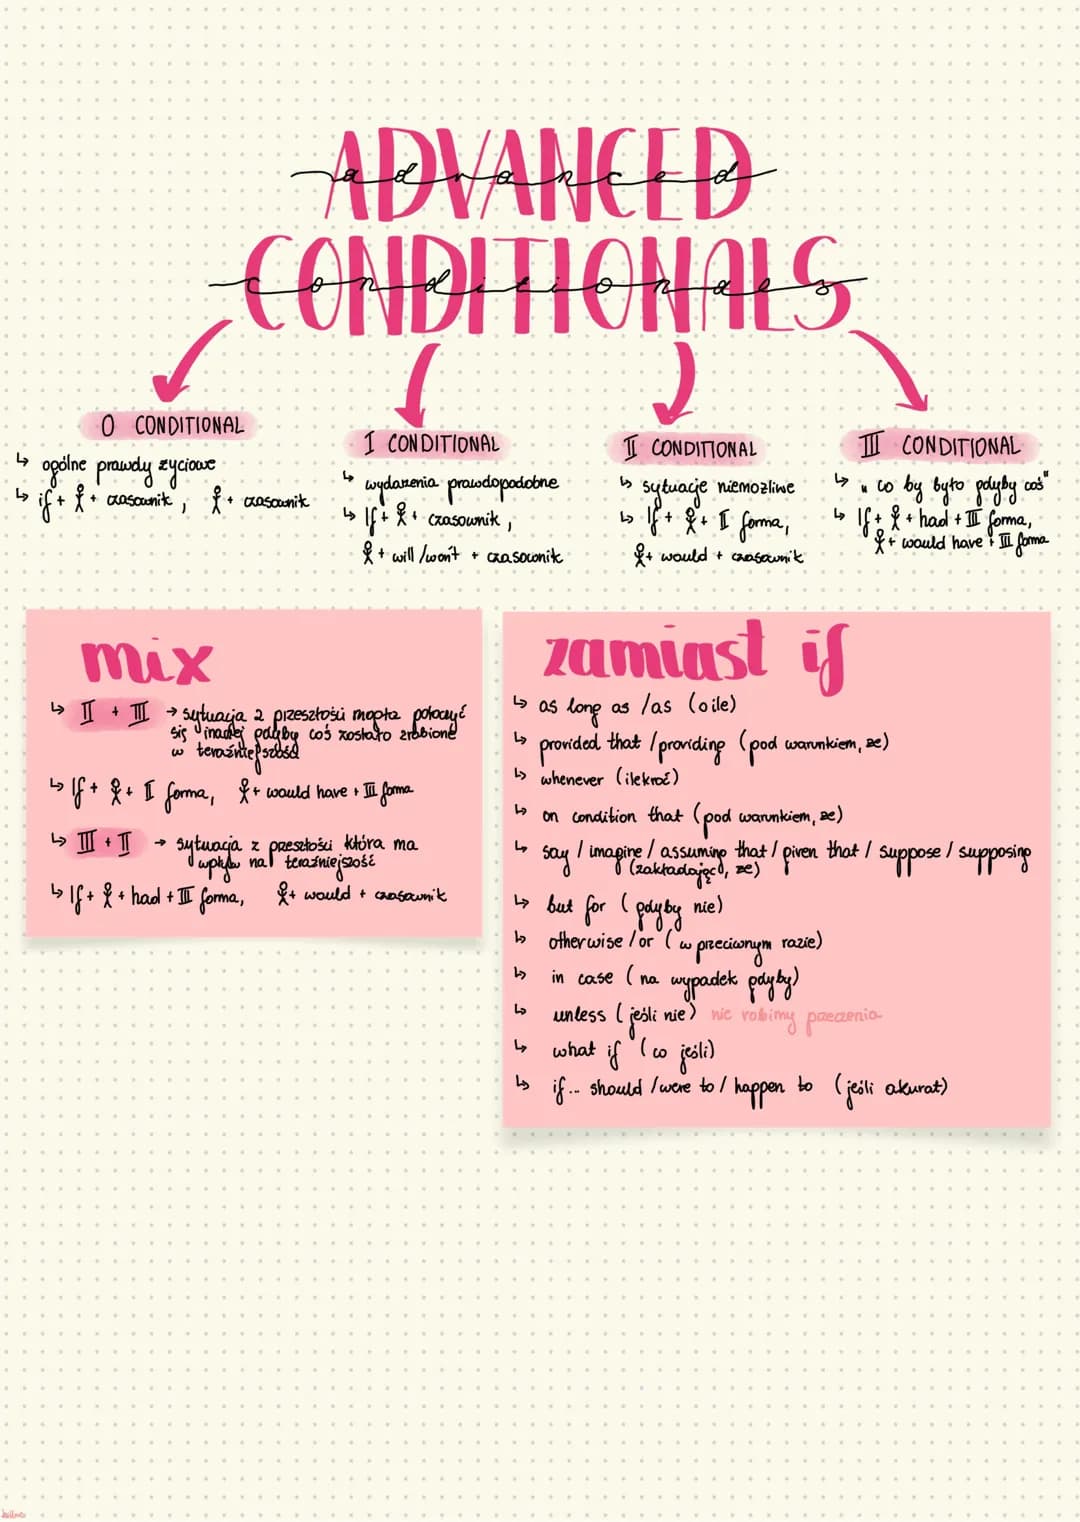 ADVANCED
advanced
CONDITIONALS
conditionals
0 CONDITIONAL
↳ ogólne prawdy życiowe
↳ if + 웃 + czasownik, 웃 + czasownik
I CONDITIONAL
↳ wydarzenia prawdopodobne
↳ If + 웃 + czasownik,
웃 + will /won't + czasownik
II CONDITIONAL
↳ sytuacje niemożliwe
↳ If + 웃 + II forma,
웃 + would + czasownik
III CONDITIONAL
↳ "co by było gdyby coś"
↳ If + 웃 + had + III forma,
웃 + would have + III forma
mix
↳ II + III → sytuacja z przeszłości mogła potoczyć
się inaczej gdyby coś zostało zrobione
w teraźniejszość
↳ If + 웃 + II forma, 웃 + would have + III forma
↳ III + II → sytuacja z przeszłości która ma
wpływ na teraźniejszość
↳ If + 웃 + had + III forma, 웃 + would + czasownik
zamiast if
↳ as long as /as (o ile)
↳ provided that /providing (pod warunkiem, że)
↳ whenever (ilekroć)
↳ on condition that (pod warunkiem, że)
↳ say / imagine / assuming that / given that / suppose / supposing
(zakładając, że)
↳ but for (gdyby nie)
↳ otherwise /or (w przeciwnym razie)
↳ in case (na wypadek gdyby)
↳ unless (jeśli nie) nie robimy przeczenia
↳ what if (co jeśli)
↳ if... should /were to / happen to (jeśli akurat)